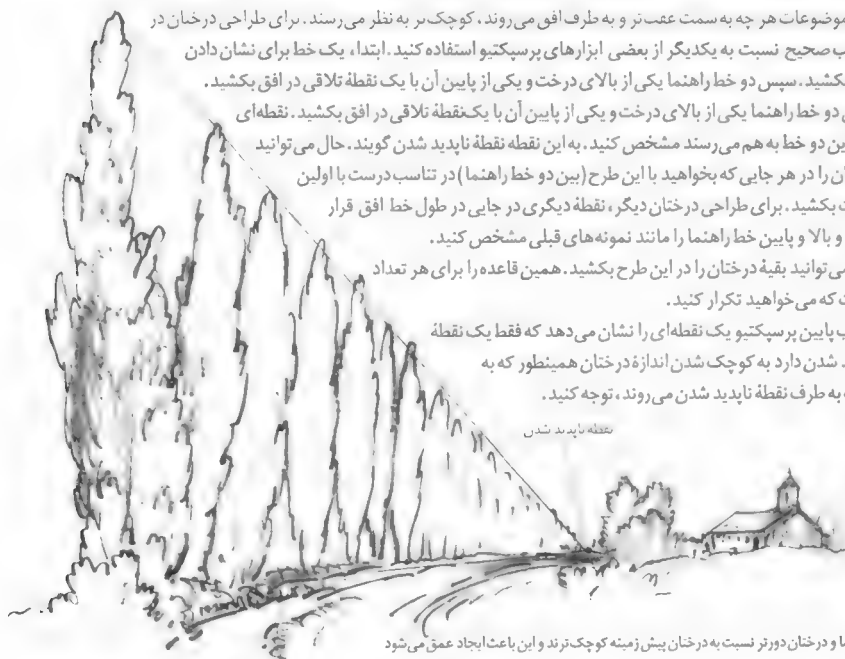 موضوعات هر چه به سمت عقب‌تر و به طرف افق می‌روند، کوچک‌تر به نظر می‌رسند. برای طراحی درختان در
ب صحیح نسبت به یکدیگر از بعضی ابزارهای پرسپکتیو استفاده کنید. ابتدا، یک خط برای نشان دادن
بکشید. سپس دو خط راهنما یکی از بالای درخت و یکی از پایین آن با یک نقطهٔ تلاقی در افق بکشید.
دو خط راهنما یکی از بالای درخت و یکی از پایین آن با یک نقطهٔ تلاقی در افق بکشید. نقطه‌ای
این دو خط به هم می‌رسند مشخص کنید. به این نقطه نقطهٔ ناپدید شدن گویند. حال می‌توانید
ان را در هر جایی که بخواهید با این طرح (بین دو خط راهنما) در تناسب درست با اولین
ت بکشید. برای طراحی درختان دیگر، نقطهٔ دیگری در جایی در طول خط افق قرار
و بالا و پایین خط راهنما را مانند نمونه‌های قبلی مشخص کنید.
می‌توانید بقیهٔ درختان را در این طرح بکشید. همین قاعده را برای هر تعداد
ت که می‌خواهید تکرار کنید.
ب پایین پرسپکتیو یک نقطه‌ای را نشان می‌دهد که فقط یک نقطهٔ
د شدن دارد به کوچک شدن اندازهٔ درختان همینطور که به
به طرف نقطهٔ ناپدید شدن می‌روند، توجه کنید.
نقطه ناپدید شدن
ما و درختان دورتر نسبت به درختان پیش زمینه کوچک‌ترند و این باعث ایجاد عمق می‌شود